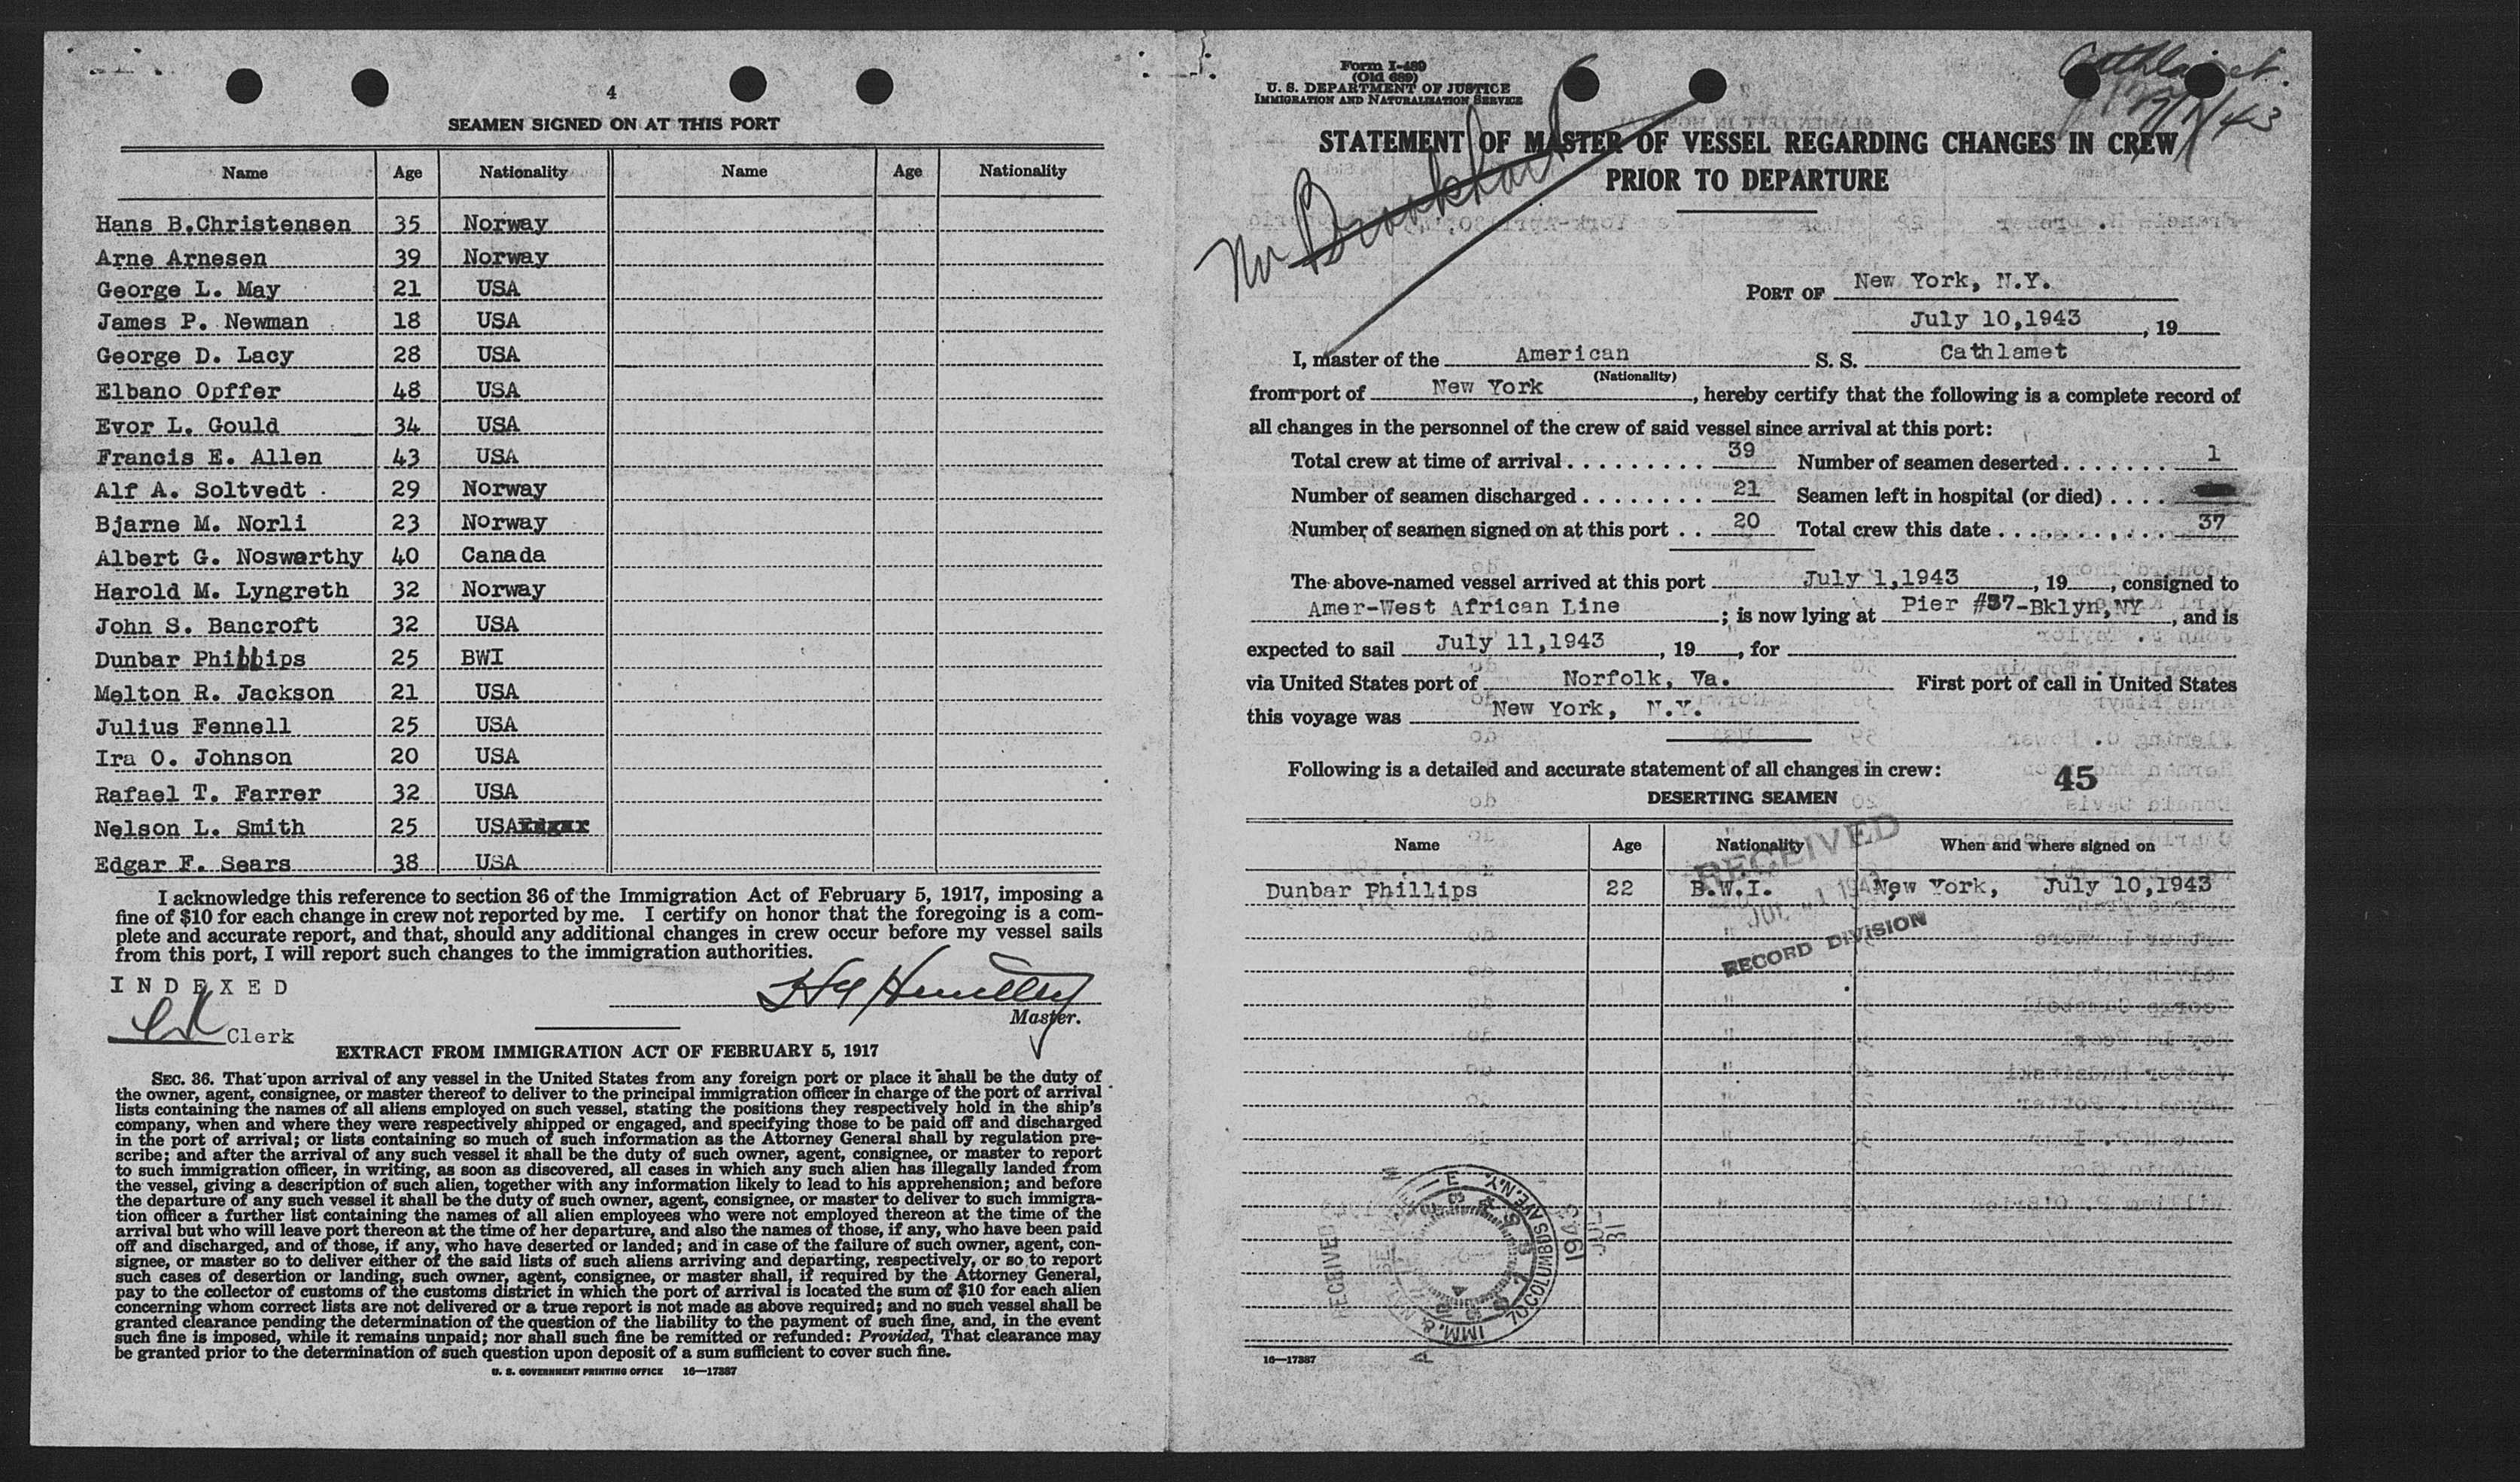 4
SEAMEN SIGNED ON AT THIS PORT
Name Age Nationality Name Age Nationality
Hans B.Christensen 35 Norway
Arne Arnesen 39 Norway
George L. May 21 USA
James P. Newman 18 USA
George D. Lacy 28 USA
Elbano Opffer 48 USA
Evor L. Gould 34 USA
Francis E. Allen 43 USA
Alf A. Soltvedt 29 Norway
Bjarne M. Norli 23 Norway
Albert G. Noswarthy 40 Canada
Harold M. Lyngreth 32 Norway
John S. Bancroft 32 USA
Dunbar Phillips 25 BWI
Melton R. Jackson 21 USA
Julius Fennell 25 USA
Ira O. Johnson 20 USA
Rafael T. Farrer 32 USA
Nelson L. Smith 25 USA
Edgar F. Sears 38 USA
I acknowledge this reference to section 36 of the Immigration Act of February 5, 1917, imposing a
fine of $10 for each change in crew not reported by me. I certify on honor that the foregoing is a com-
plete and accurate report, and that, should any additional changes in crew occur before my vessel sails
from this port, I will report such changes to the immigration authorities.
INDEXED
Master.
Clerk
EXTRACT FROM IMMIGRATION ACT OF FEBRUARY 5, 1917
SEC. 36. That upon arrival of any vessel in the United States from any foreign port or place it shall be the duty of
the owner, agent, consignee, or master thereof to deliver to the principal immigration officer in charge of the port of arrival
lists containing the names of all aliens employed on such vessel, stating the positions they respectively hold in the ship's
company, when and where they were respectively shipped or engaged, and specifying those to be paid off and discharged
in the port of arrival; or lists containing so much of such information as the Attorney General shall by regulation pre-
scribe; and after the arrival of any such vessel it shall be the duty of such owner, agent, consignee, or master to report
to such immigration officer, in writing, as soon as discovered, all cases in which any such alien has illegally landed from
the vessel, giving a description of such alien, together with any information likely to lead to his apprehension; and before
the departure of any such vessel it shall be the duty of such owner, agent, consignee, or master to deliver to such immigra-
tion officer a further list containing the names of all alien employees who were not employed thereon at the time of the
arrival but who will leave port thereon at the time of her departure, and also the names of those, if any, who have been paid
off and discharged, and of those, if any, who have deserted or landed; and in case of the failure of such owner, agent, con-
signee, or master so to deliver either of the said lists of such aliens arriving and departing, respectively, or so to report
such cases of desertion or landing, such owner, agent, consignee, or master shall, if required by the Attorney General,
pay to the collector of customs of the customs district in which the port of arrival is located the sum of $10 for each alien
concerning whom correct lists are not delivered or a true report is not made as above required; and no such vessel shall be
granted clearance pending the determination of the question of the liability to the payment of such fine, and, in the event
such fine is imposed, while it remains unpaid; nor shall such fine be remitted or refunded: Provided, That clearance may
be granted prior to the determination of such question upon deposit of a sum sufficient to cover such fine.
U. S. GOVERNMENT PRINTING OFFICE 16—17387
Form I-489
(Old 689)
U. S. DEPARTMENT OF JUSTICE
IMMIGRATION AND NATURALIZATION SERVICE
Cathlamet.
7/17/43
STATEMENT OF MASTER OF VESSEL REGARDING CHANGES IN CREW
PRIOR TO DEPARTURE
Mr
PORT OF New York, N.Y.
July 10,1943, 19
I, master of the American S. S. Cathlamet
(Nationality)
from port of New York, hereby certify that the following is a complete record of
all changes in the personnel of the crew of said vessel since arrival at this port:
Total crew at time of arrival......... 39 Number of seamen deserted....... 1
Number of seamen discharged........ 21 Seamen left in hospital (or died)....
Number of seamen signed on at this port.. 20 Total crew this date.......... 37
The above-named vessel arrived at this port July 1,1943, 19, consigned to
Amer-West African Line; is now lying at Pier #37-Bklyn,NY, and is
expected to sail July 11,1943, 19, for
via United States port of Norfolk, Va. First port of call in United States
this voyage was New York, N.Y.
Following is a detailed and accurate statement of all changes in crew: 45
DESERTING SEAMEN
Name Age Nationality When and where signed on
Dunbar Phillips 22 B.W.I. New York, July 10,1943
RECEIVED
RECORD DIVISION
RECEIVED
70 COLUMBUS AVE. N.Y.
IMM. &
1943
16—17387